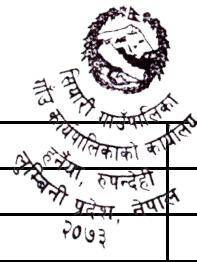 सियारी गाउँपालिका
गाउँ कार्यपालिकाको कार्यालय
रुपन्देही
लुम्बिनी प्रदेश, नेपाल
२०७३